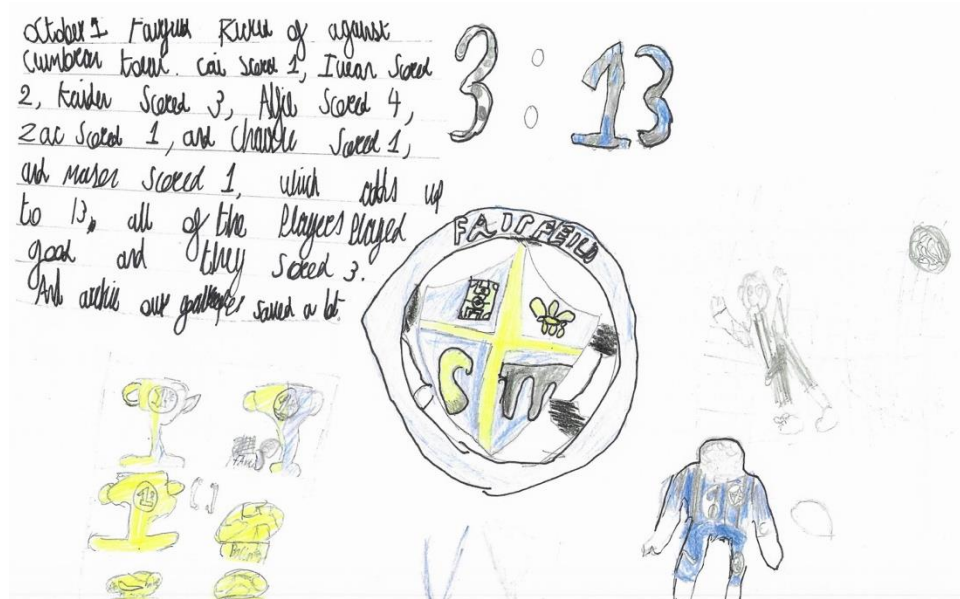 october 1 Fairfield kicked of against
Cwmbran town. cai scored 1, Iwan scored
2, kaiden scored 3, Alfie scored 4,
Zac scored 1, and charlie scored 1,
and mason scored 1, which adds up
to 13, all of the players played
good and they scored 3.
And archie our goalkeeper saved a lot.
3 : 13
FAIRFEILD